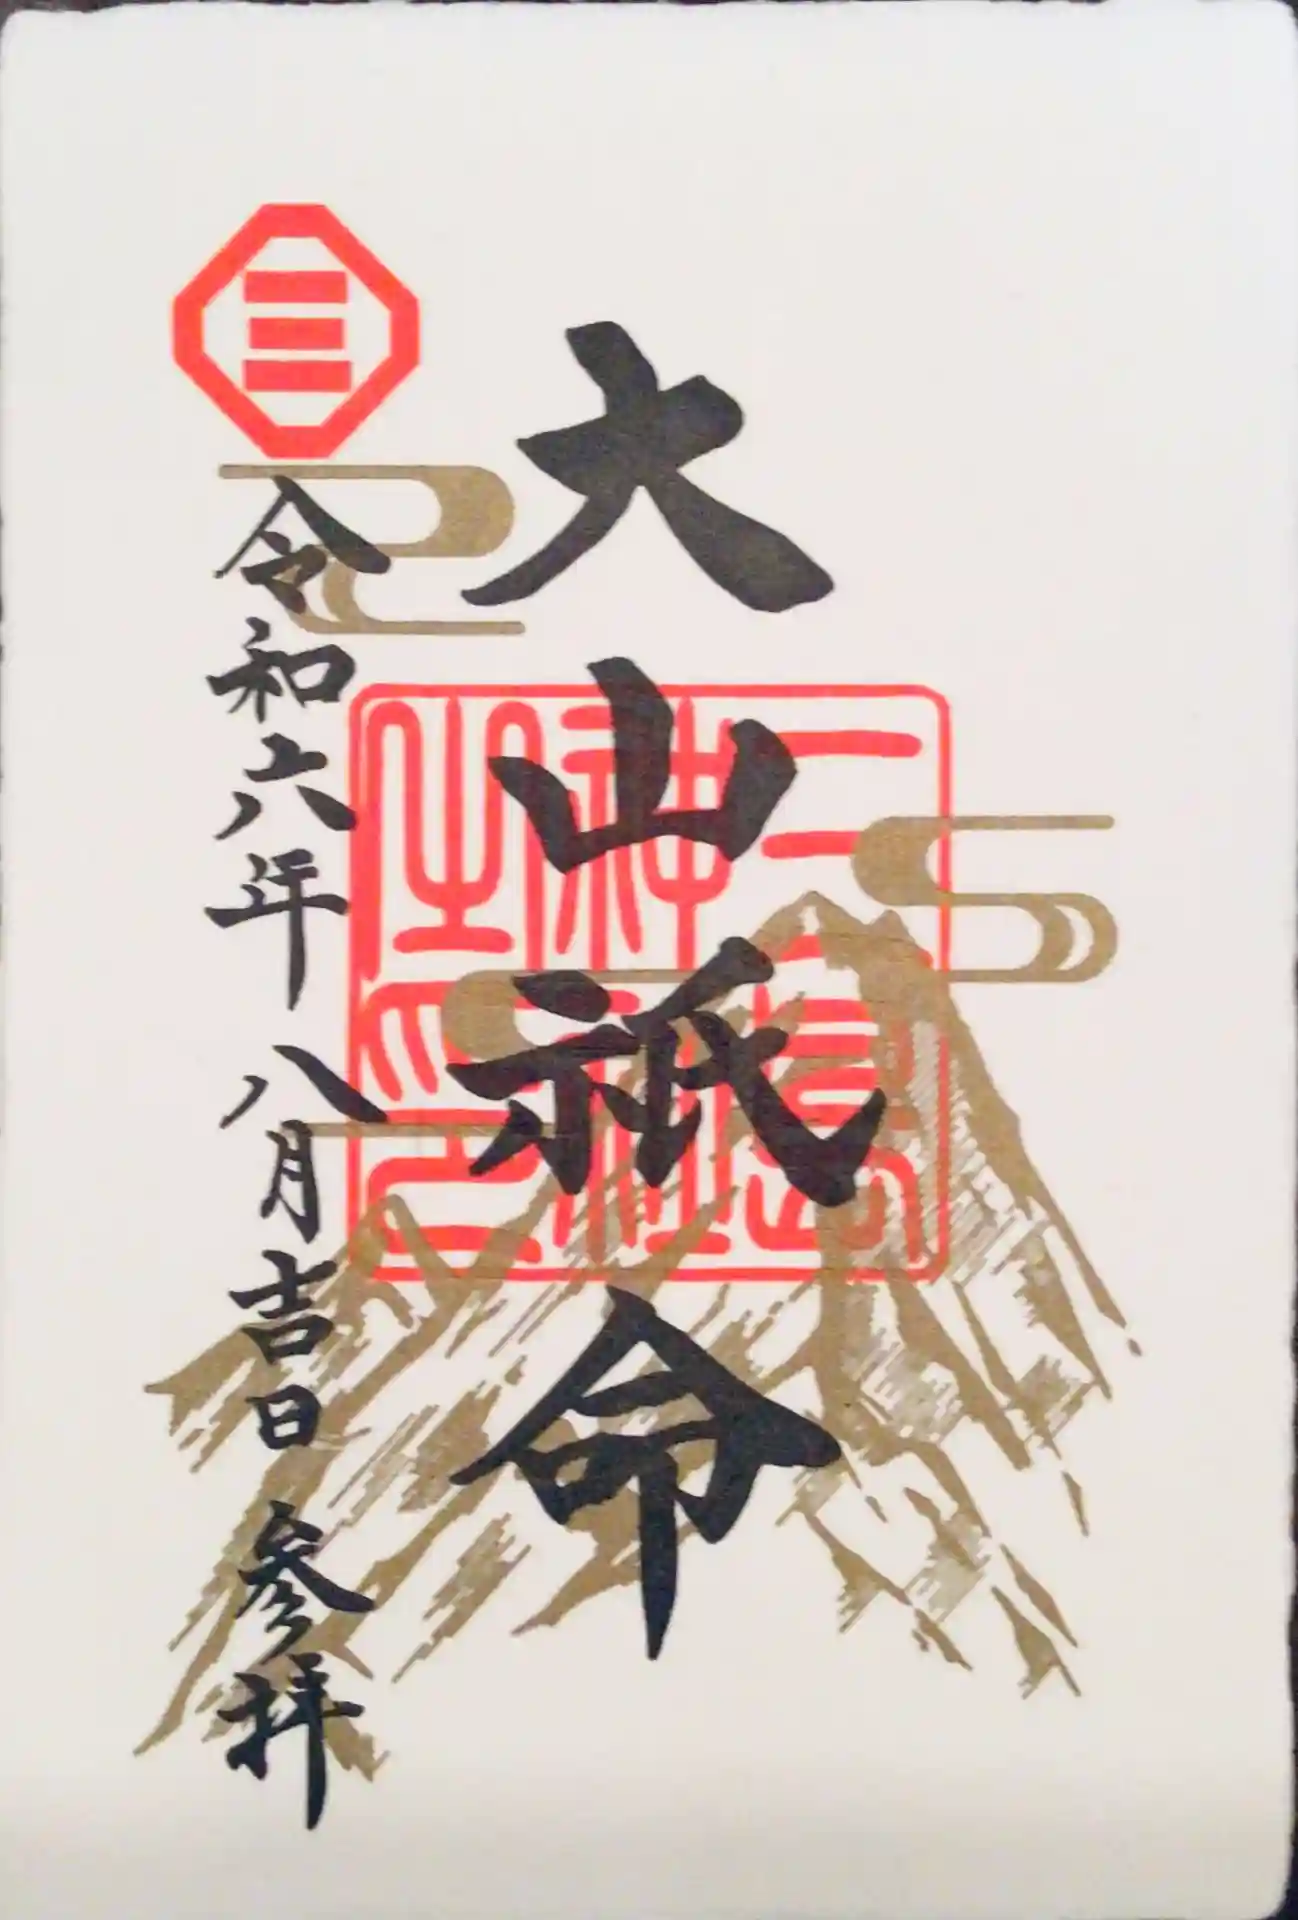 大山祇命
三島神社之印
令和六年 八月吉日 参拝